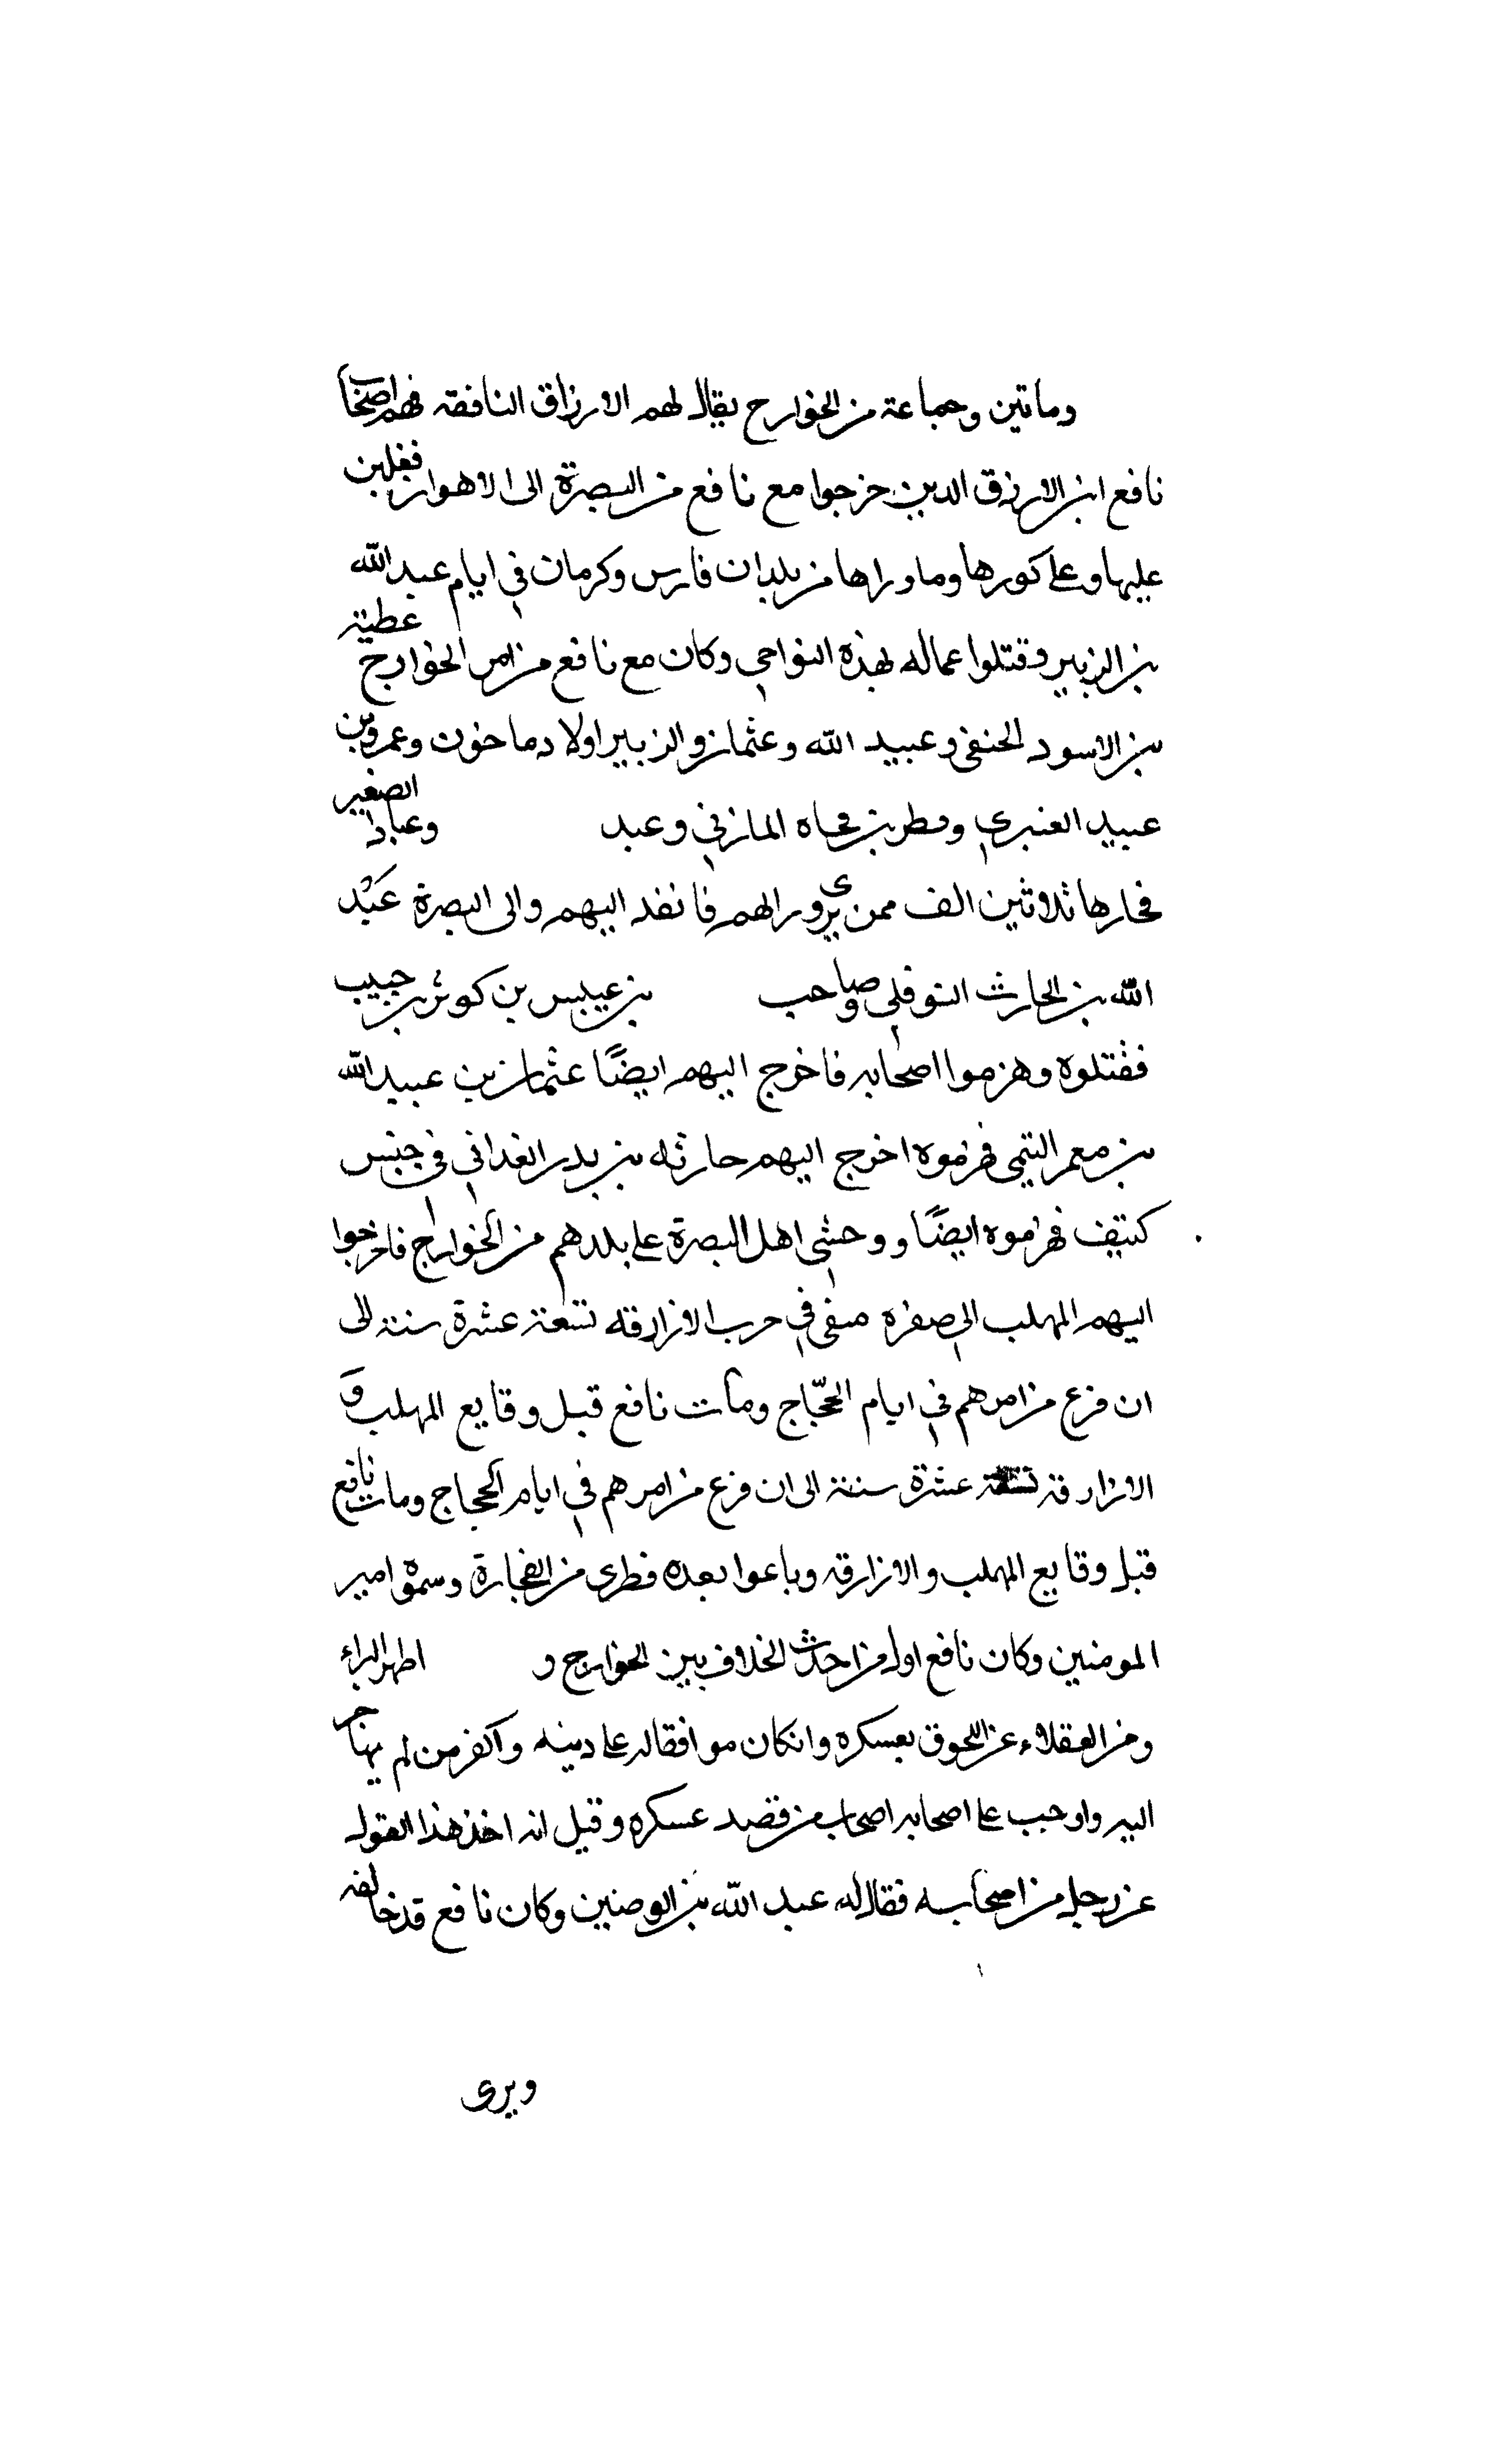 ومأتين وجماعة من الخوارج يقال لهم الارزاق النافقه فهم اصحاب
نافع ابن الارزق الدين خرجوا مع نافع من البصرة الى الاهواز فغلبن
عليها وعلى كورها وما وراها من بلدان فارس وكرمان في ايام عبد الله
بن الزبير وقتلوا عماله بهذه النواحي وكان مع نافع من امر الخوارج عطية
بن الاسود الحنفي وعبيد الله وعثمان والزبير اولاد ماخون وعمرو بن
عبيد العنبري وقطر بن فجاه المازني وعبد الصغير وعباد
فحارها ثلاثين الف ممن يرى وراالهم فانفد اليهم والى البصرة عبد
الله بن الحارث النوفلي وصاحب بن عيبس بن كويز بن حبيب
ففتلوه وهزموا اصحابه فاخرج اليهم ايضًا عثمان بن عبيد الله
بن معمر التيمي فهزموه اخرج اليهم حارثه بن بدر الغداني في جنيس
كنتيف فهزموه ايضًا ووحشى اهل البصرة على بلدهم من الخوارج فاخرجوا
اليهم المهلب الى صفره منفى في حرب الازارقه تتعة عشرة سنة الى
ان فرع من امرهم في ايام الحجّاج ومات نافع قبل وقايع المهلب و
الازارقة عشرة سنة الى ان فرع من امرهم في ايام الحجاج ومات نافع
قبل وقايع المهلب والازارقه وباعوا بعده فطرى من الفجارة وسموه امير
المومنين وكان نافع اول من احدث الخلاف بين الخوارج و اظهر البراء
ومن العقلاء عن اللحوق بعسكره وانكان موافقا له على دينه واكفر من لم يهاجر
اليه واوجب على اصحابه اصحاب من قصد عسكره وقيل انه اخذ هذا القول
عن رجل من اصحابه فقال له عبد الله بن الوصنين وكان نافع قد خالفه
ويرى